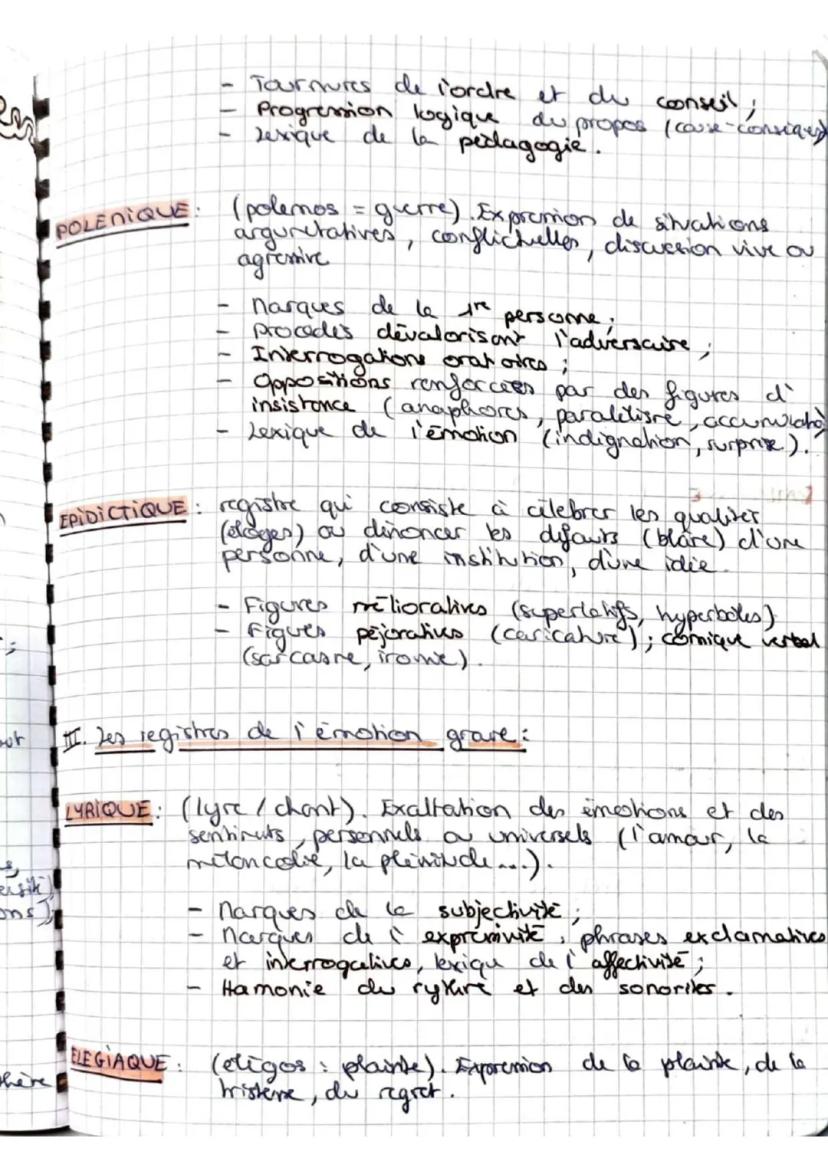 - Tournures de l'ordre et du conseil ;
- Progression logique du propos (cause-conséq)
- Lexique de la pédagogie.
POLEMIQUE : (polemos = guerre). Expression de situations
argumtatives, conflictuelles, discussion vive ou
agressive
- Marques de la 1re personne ;
- procédés dévalorisant l'adversaire ;
- Interrogations oratoires ;
- Oppositions renforcées par des figures d'
insistance (anaphores, parallélisme, accumulatio)
- Lexique de l'émotion (indignation, surprise).
EPIDICTIQUE : registre qui consiste à célébrer les qualités
(éloges) ou dénoncer les défauts (blâme) d'une
personne, d'une institution, d'une idée.
- Figures mélioratives (superlatifs, hyperboles)
- Figures péjoratives (caricature) ; comique verbal
(sarcasme, ironie).
II. Les registres de l'émotion grave :
LYRIQUE : (lyre / chant). Exaltation des émotions et des
sentimts, personnels ou universels (l'amour, la
mélancolie, la plénitude...).
- Marques de la subjectivité ;
- Marques de l'expressivité, phrases exclamatives
et interrogatives, lexique de l'affectivité ;
- Hamonie du rythme et des sonorités.
ELEGIAQUE : (elegos : plainte). Expression de la plainte, de la
tristesse, du regret.